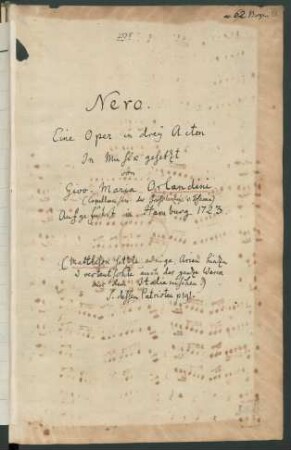 Nero.
Eine Oper in drey Acten
In Musik gesetzt
von
Giov. Maria Orlandini
(Capellmeister des Großherzogs v. Florenz)
Aufgeführt in Hamburg 1723
(Mattheson setzte einige Arien hinzu
verteutschte auch der ganzen
aus dem Italienischen)
S. dessen Patrioten